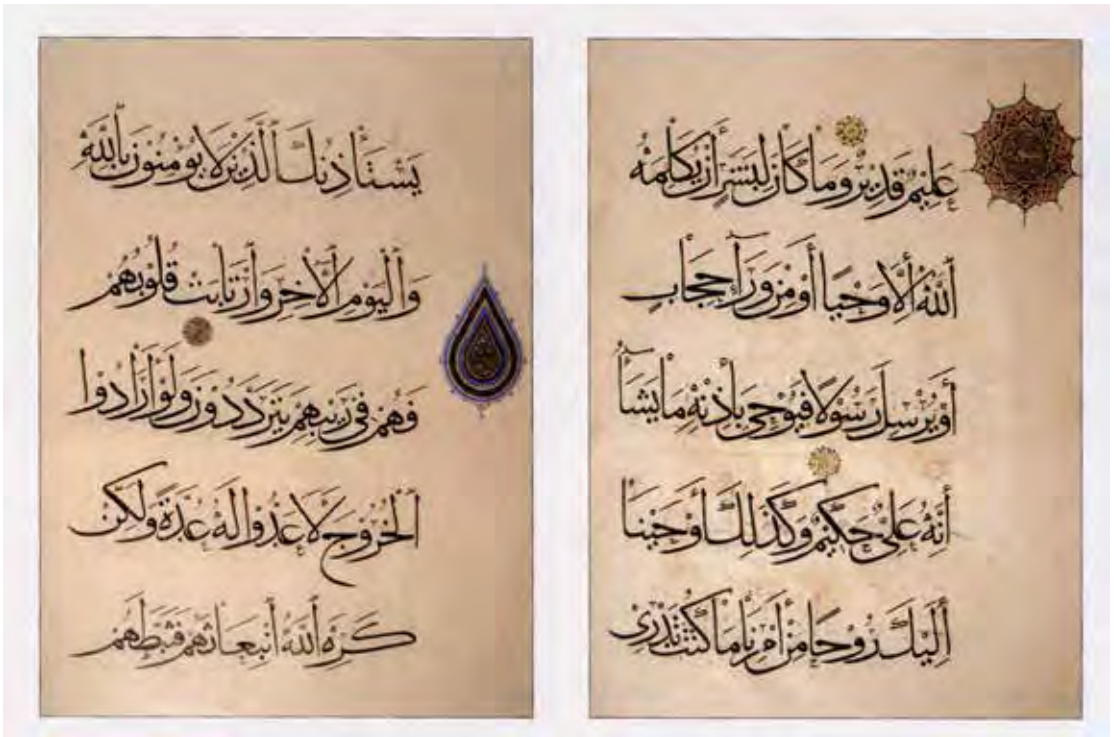 عَلِيمٌ قَدِيرٌ وَمَا كَانَ لِبَشَرٍ أَنْ يُكَلِّمَهُ
ٱللَّهُ إِلَّا وَحْيًا أَوْ مِنْ وَرَآءِ حِجَابٍ
أَوْ يُرْسِلَ رَسُولًا فَيُوحِيَ بِإِذْنِهِ مَا يَشَآءُ
إِنَّهُ عَلِيٌّ حَكِيمٌ وَكَذَلِكَ أَوْحَيْنَا
إِلَيْكَ رُوحًا مِنْ أَمْرِنَا مَا كُنْتَ تَدْرِى
يَسْتَأْذِنُكَ ٱلَّذِينَ لَا يُؤْمِنُونَ بِٱللَّهِ
وَٱلْيَوْمِ ٱلْآخِرِ وَٱرْتَابَتْ قُلُوبُهُمْ
فَهُمْ فِى رَيْبِهِمْ يَتَرَدَّدُونَ وَلَوْ أَرَادُوا
ٱلْخُرُوجَ لَأَعَدُّوا لَهُ عُدَّةً وَلَكِنْ
كَرِهَ ٱللَّهُ ٱنْبِعَاثَهُمْ فَثَبَّطَهُمْ